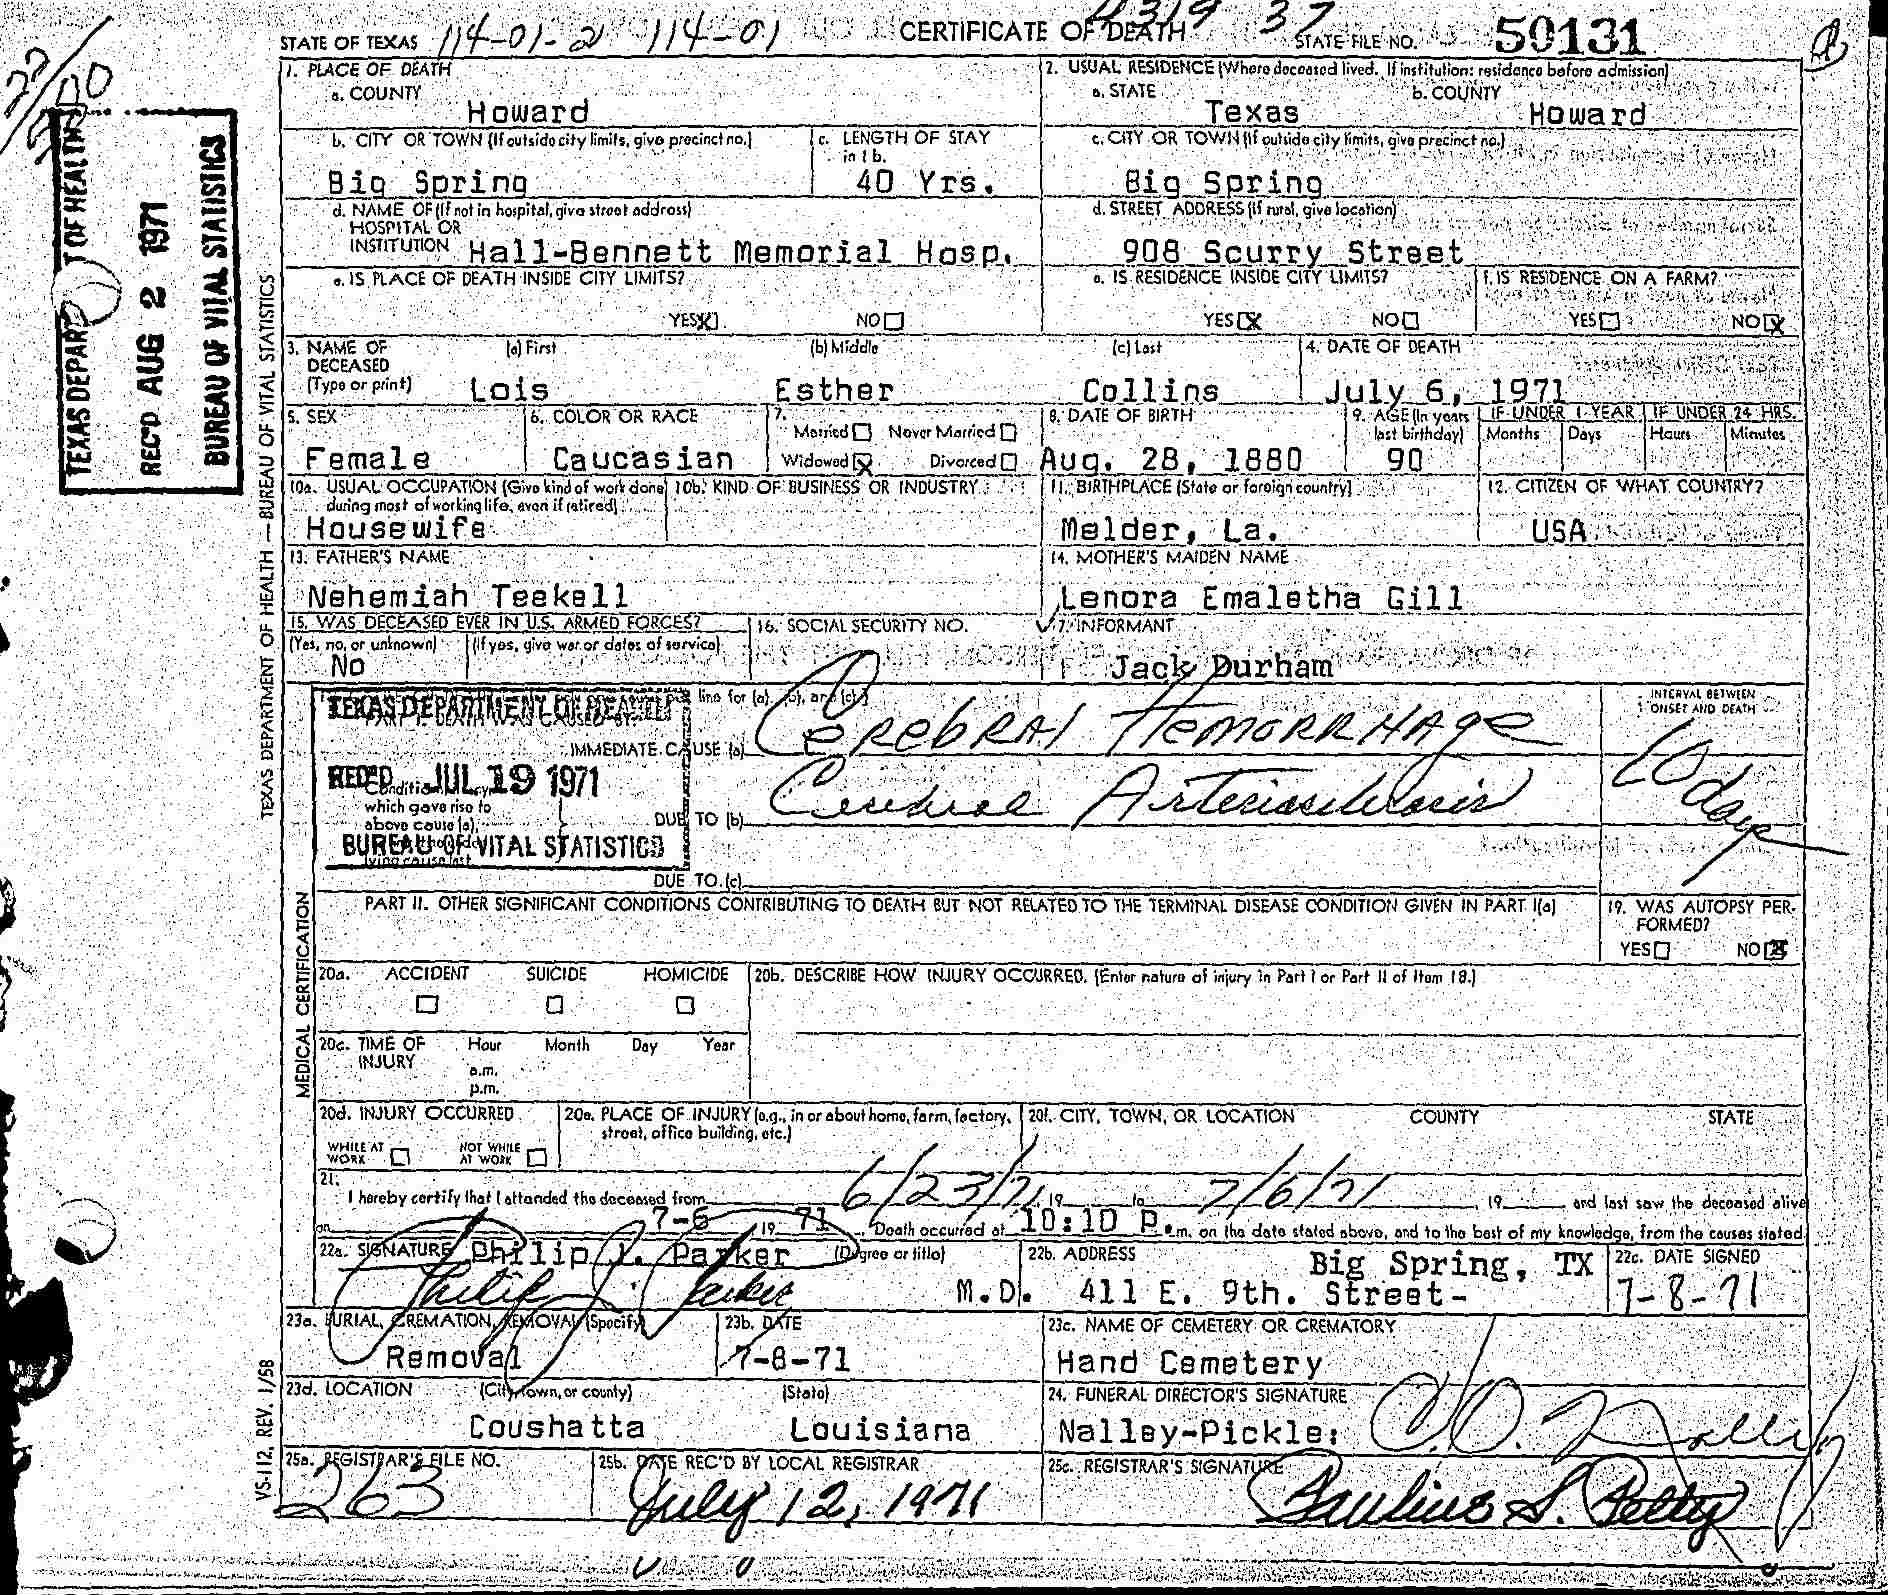 STATE OF TEXAS 114-01-2 114-01 CERTIFICATE OF DEATH 37 STATE FILE NO. 50131
1. PLACE OF DEATH
a. COUNTY
Howard
2. USUAL RESIDENCE (Where deceased lived. If institution: residence before admission)
a. STATE b. COUNTY
Texas Howard
b. CITY OR TOWN (If outside city limits, give precinct no.)
Big Spring
c. LENGTH OF STAY
in 1 b.
40 Yrs.
c. CITY OR TOWN (If outside city limits, give precinct no.)
Big Spring
d. NAME OF (If not in hospital, give street address)
HOSPITAL OR
INSTITUTION Hall-Bennett Memorial Hosp.
d. STREET ADDRESS (If rural, give location)
908 Scurry Street
e. IS PLACE OF DEATH INSIDE CITY LIMITS?
YES X NO
e. IS RESIDENCE INSIDE CITY LIMITS?
YES X NO
f. IS RESIDENCE ON A FARM?
YES NO X
3. NAME OF
DECEASED
(Type or print)
(a) First (b) Middle (c) Last
Lois Esther Collins
4. DATE OF DEATH
July 6, 1971
5. SEX
Female
6. COLOR OR RACE
Caucasian
7.
Married Never Married
Widowed X Divorced
8. DATE OF BIRTH
Aug. 28, 1880
9. AGE (In years
last birthday)
90
IF UNDER 1 YEAR IF UNDER 24 HRS.
Months Days Hours Minutes
10a. USUAL OCCUPATION (Give kind of work done
during most of working life, even if retired)
Housewife
10b. KIND OF BUSINESS OR INDUSTRY
11. BIRTHPLACE (State or foreign country)
Melder, La.
12. CITIZEN OF WHAT COUNTRY?
USA
13. FATHER'S NAME
Nehemiah Teekell
14. MOTHER'S MAIDEN NAME
Lenora Emaletha Gill
15. WAS DECEASED EVER IN U.S. ARMED FORCES?
(Yes, no, or unknown) (If yes, give war or dates of service)
No
16. SOCIAL SECURITY NO.
17. INFORMANT
Jack Durham
line for (a), (b), and (c)
IMMEDIATE CAUSE (a) Cerebral Hemorrhage
which gave rise to
above cause (a),
lying cause last
DUE TO (b) Cerebral Arteriosclerosis
DUE TO (c)
INTERVAL BETWEEN
ONSET AND DEATH
10 days
TEXAS DEPARTMENT OF HEALTH
REC'D JUL 19 1971
BUREAU OF VITAL STATISTICS
PART II. OTHER SIGNIFICANT CONDITIONS CONTRIBUTING TO DEATH BUT NOT RELATED TO THE TERMINAL DISEASE CONDITION GIVEN IN PART I(a)
19. WAS AUTOPSY PER-
FORMED?
YES NO X
20a. ACCIDENT SUICIDE HOMICIDE
20b. DESCRIBE HOW INJURY OCCURRED. (Enter nature of injury in Part I or Part II of Item 18.)
20c. TIME OF
INJURY
Hour Month Day Year
a.m.
p.m.
20d. INJURY OCCURRED
WHILE AT
WORK
NOT WHILE
AT WORK
20e. PLACE OF INJURY (e.g., in or about home, farm, factory,
street, office building, etc.)
20f. CITY, TOWN, OR LOCATION COUNTY STATE
21.
I hereby certify that I attended the deceased from 6/23/71, 19 to 7/6/71, 19 and last saw the deceased alive
on 7-6 19 71. Death occurred at 10:10 P.m. on the date stated above, and to the best of my knowledge, from the causes stated.
22a. SIGNATURE Philip J. Parker (Degree or title)
Philip J. Parker M.D.
22b. ADDRESS
Big Spring, TX
411 E. 9th. Street-
22c. DATE SIGNED
7-8-71
23a. BURIAL, CREMATION, REMOVAL (Specify)
Removal
23b. DATE
7-8-71
23c. NAME OF CEMETERY OR CREMATORY
Hand Cemetery
23d. LOCATION (City, town, or county) (State)
Coushatta Louisiana
24. FUNERAL DIRECTOR'S SIGNATURE
Nalley-Pickle:
25a. REGISTRAR'S FILE NO.
263
25b. DATE REC'D BY LOCAL REGISTRAR
July 12, 1971
25c. REGISTRAR'S SIGNATURE
Paulius S. Petty
TEXAS DEPARTMENT OF HEALTH
REC'D AUG 2 1971
BUREAU OF VITAL STATISTICS
TEXAS DEPARTMENT OF HEALTH — BUREAU OF VITAL STATISTICS
MEDICAL CERTIFICATION
VS-112, REV. 1/58